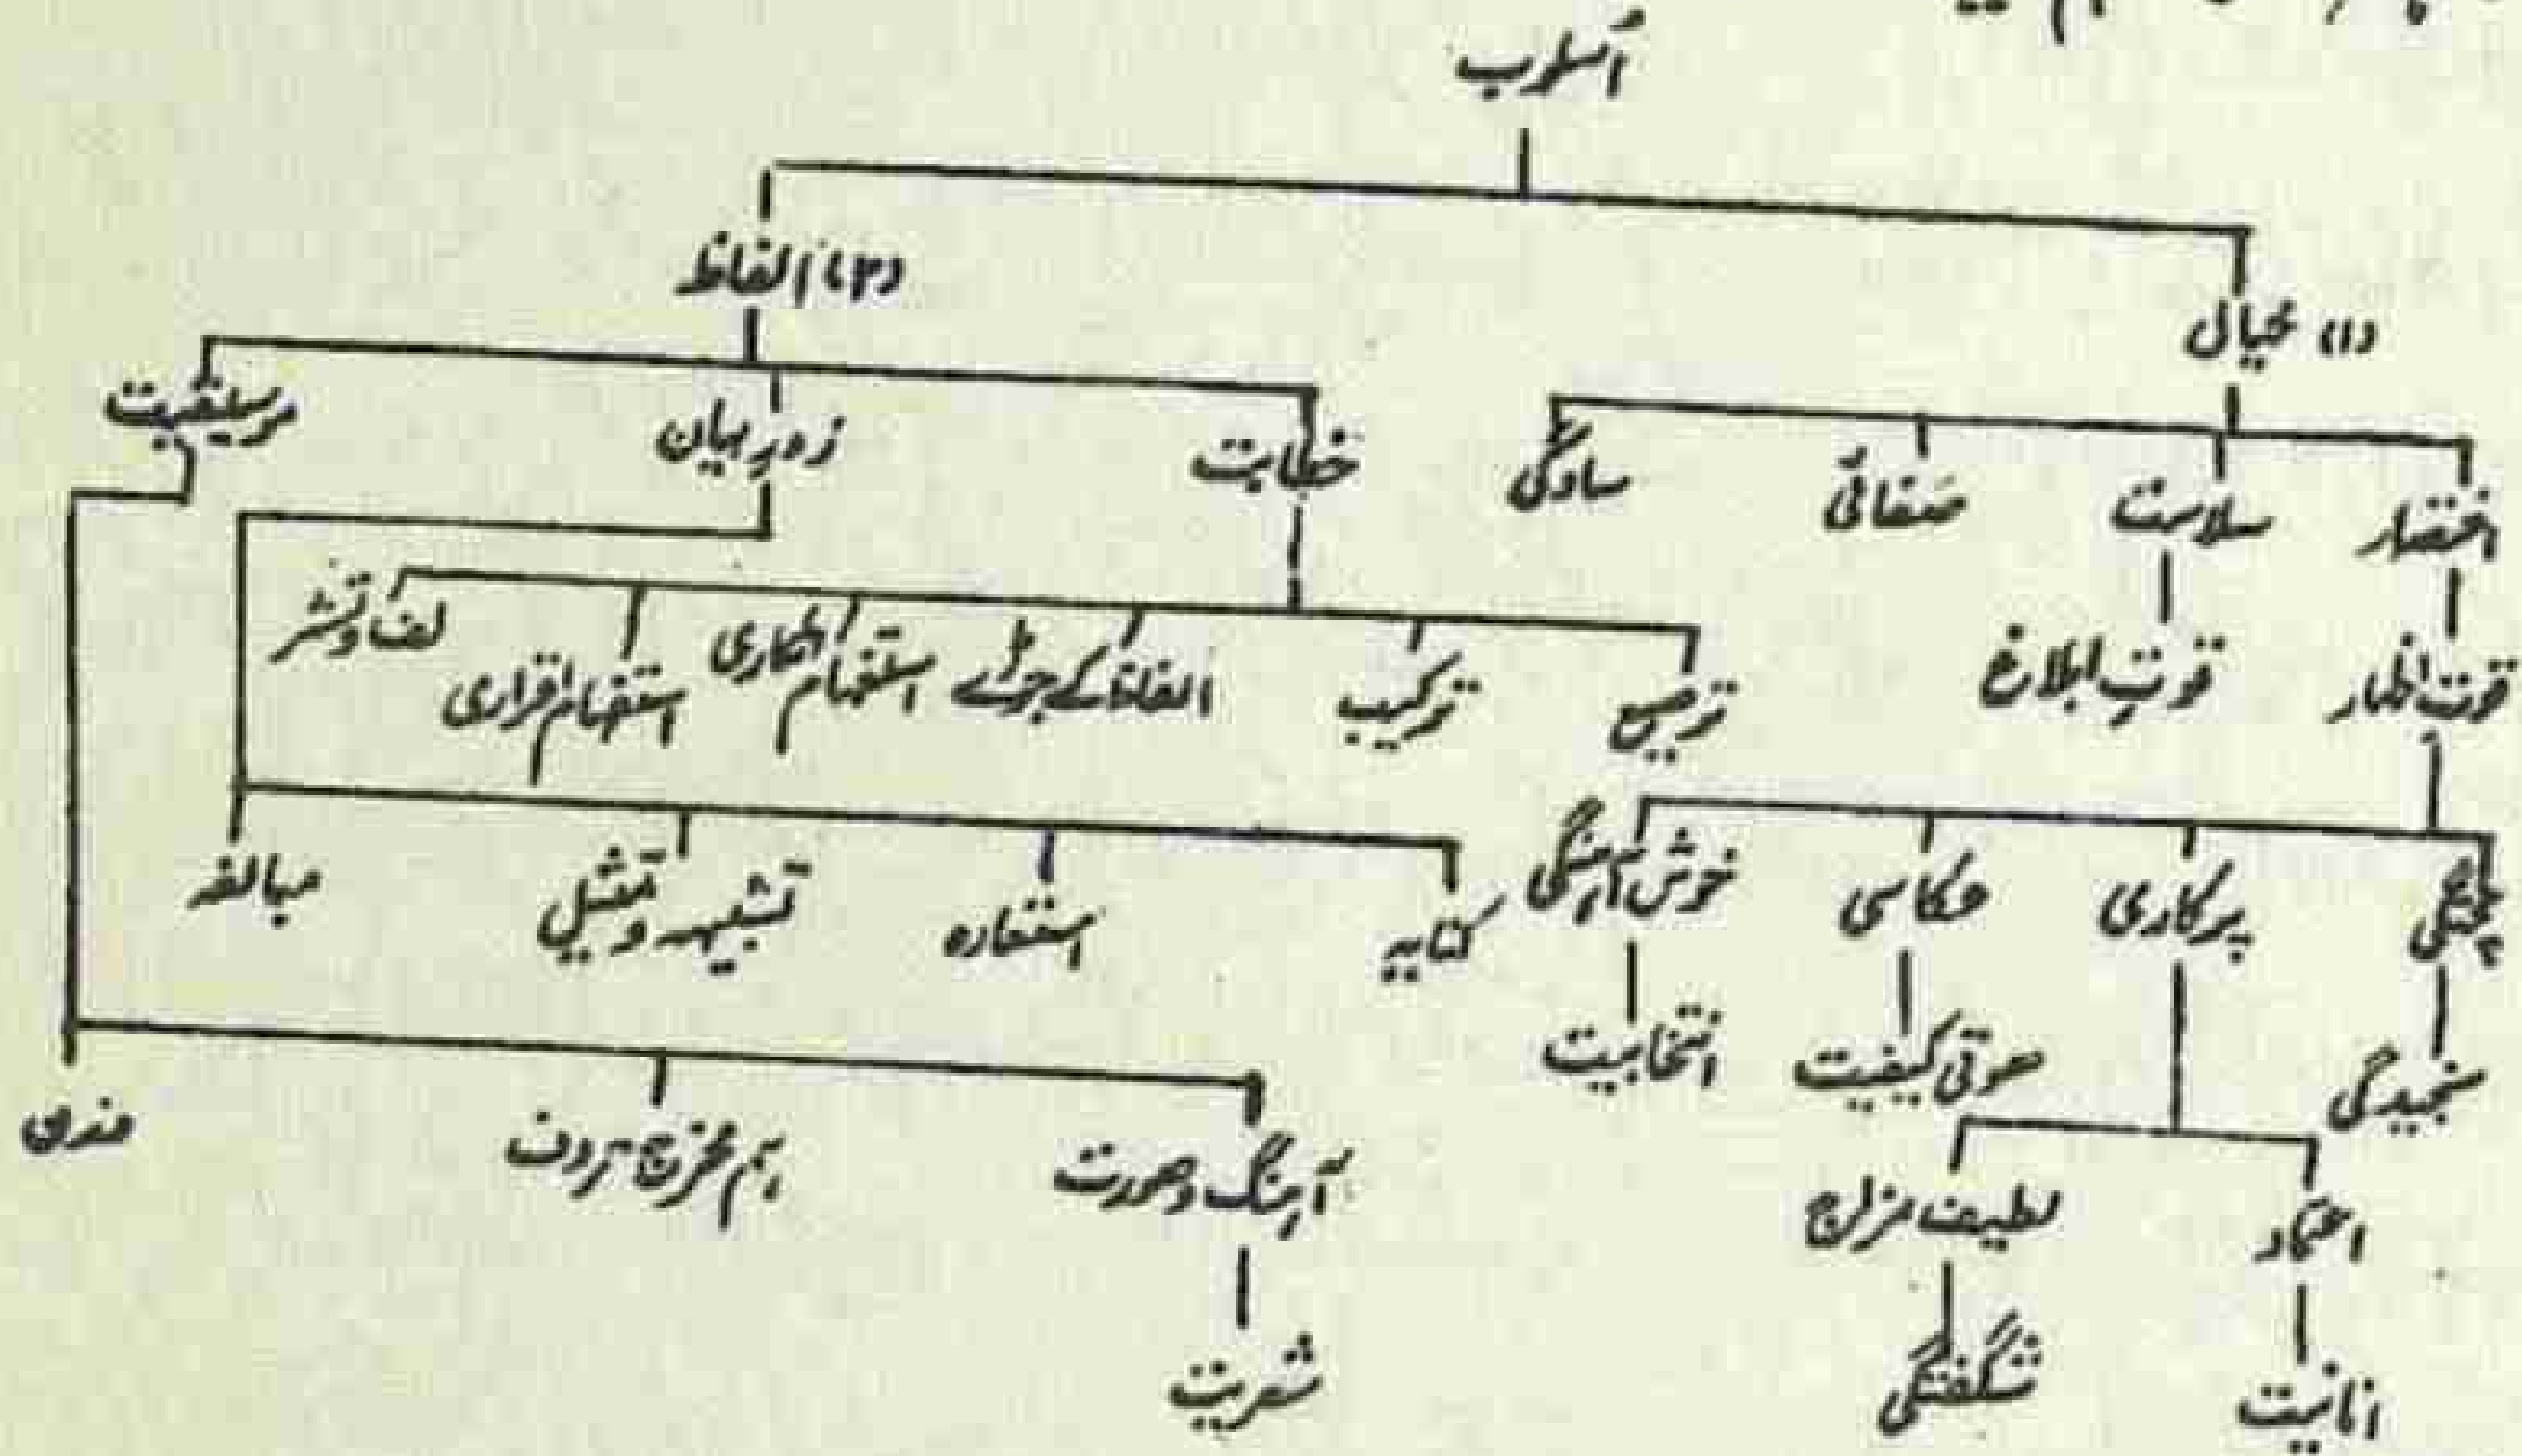 اُسلوب
(۱) خیال
(۲) الفاظ
اختصار
سلاست
صفائی
سادگی
خطابت
زورِ بیان
مرسیقیت
قوت اظہار
قوتِ ابلاغ
ترصیع
ترکیب
الفاظ کے جوڑے
استفہام انکاری
استفہام اقراری
لف و نشر
پختگی
پرکاری
عکاسی
خوش آہنگی
کنایہ
استعارہ
تشبیہہ و تمثیل
مبالغہ
سنجیدگی
صوتی کیفیت
انتخابیت
اعتماد
لطیف مزاج
آہنگ و صورت
ہم مخرج حروف
انانیت
شگفتگی
شعریت